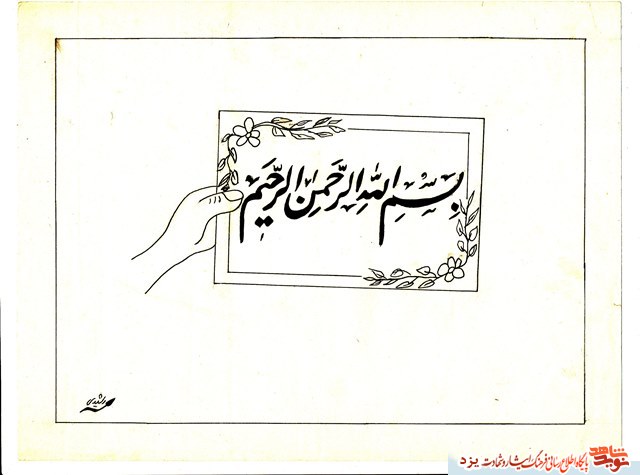 بِسْمِ اللهِ الرَّحْمنِ الرَّحیَم
رشیدی
نوید شاهد
پایگاه اطلاع رسانی فرهنگ ایثار و شهادت یزد